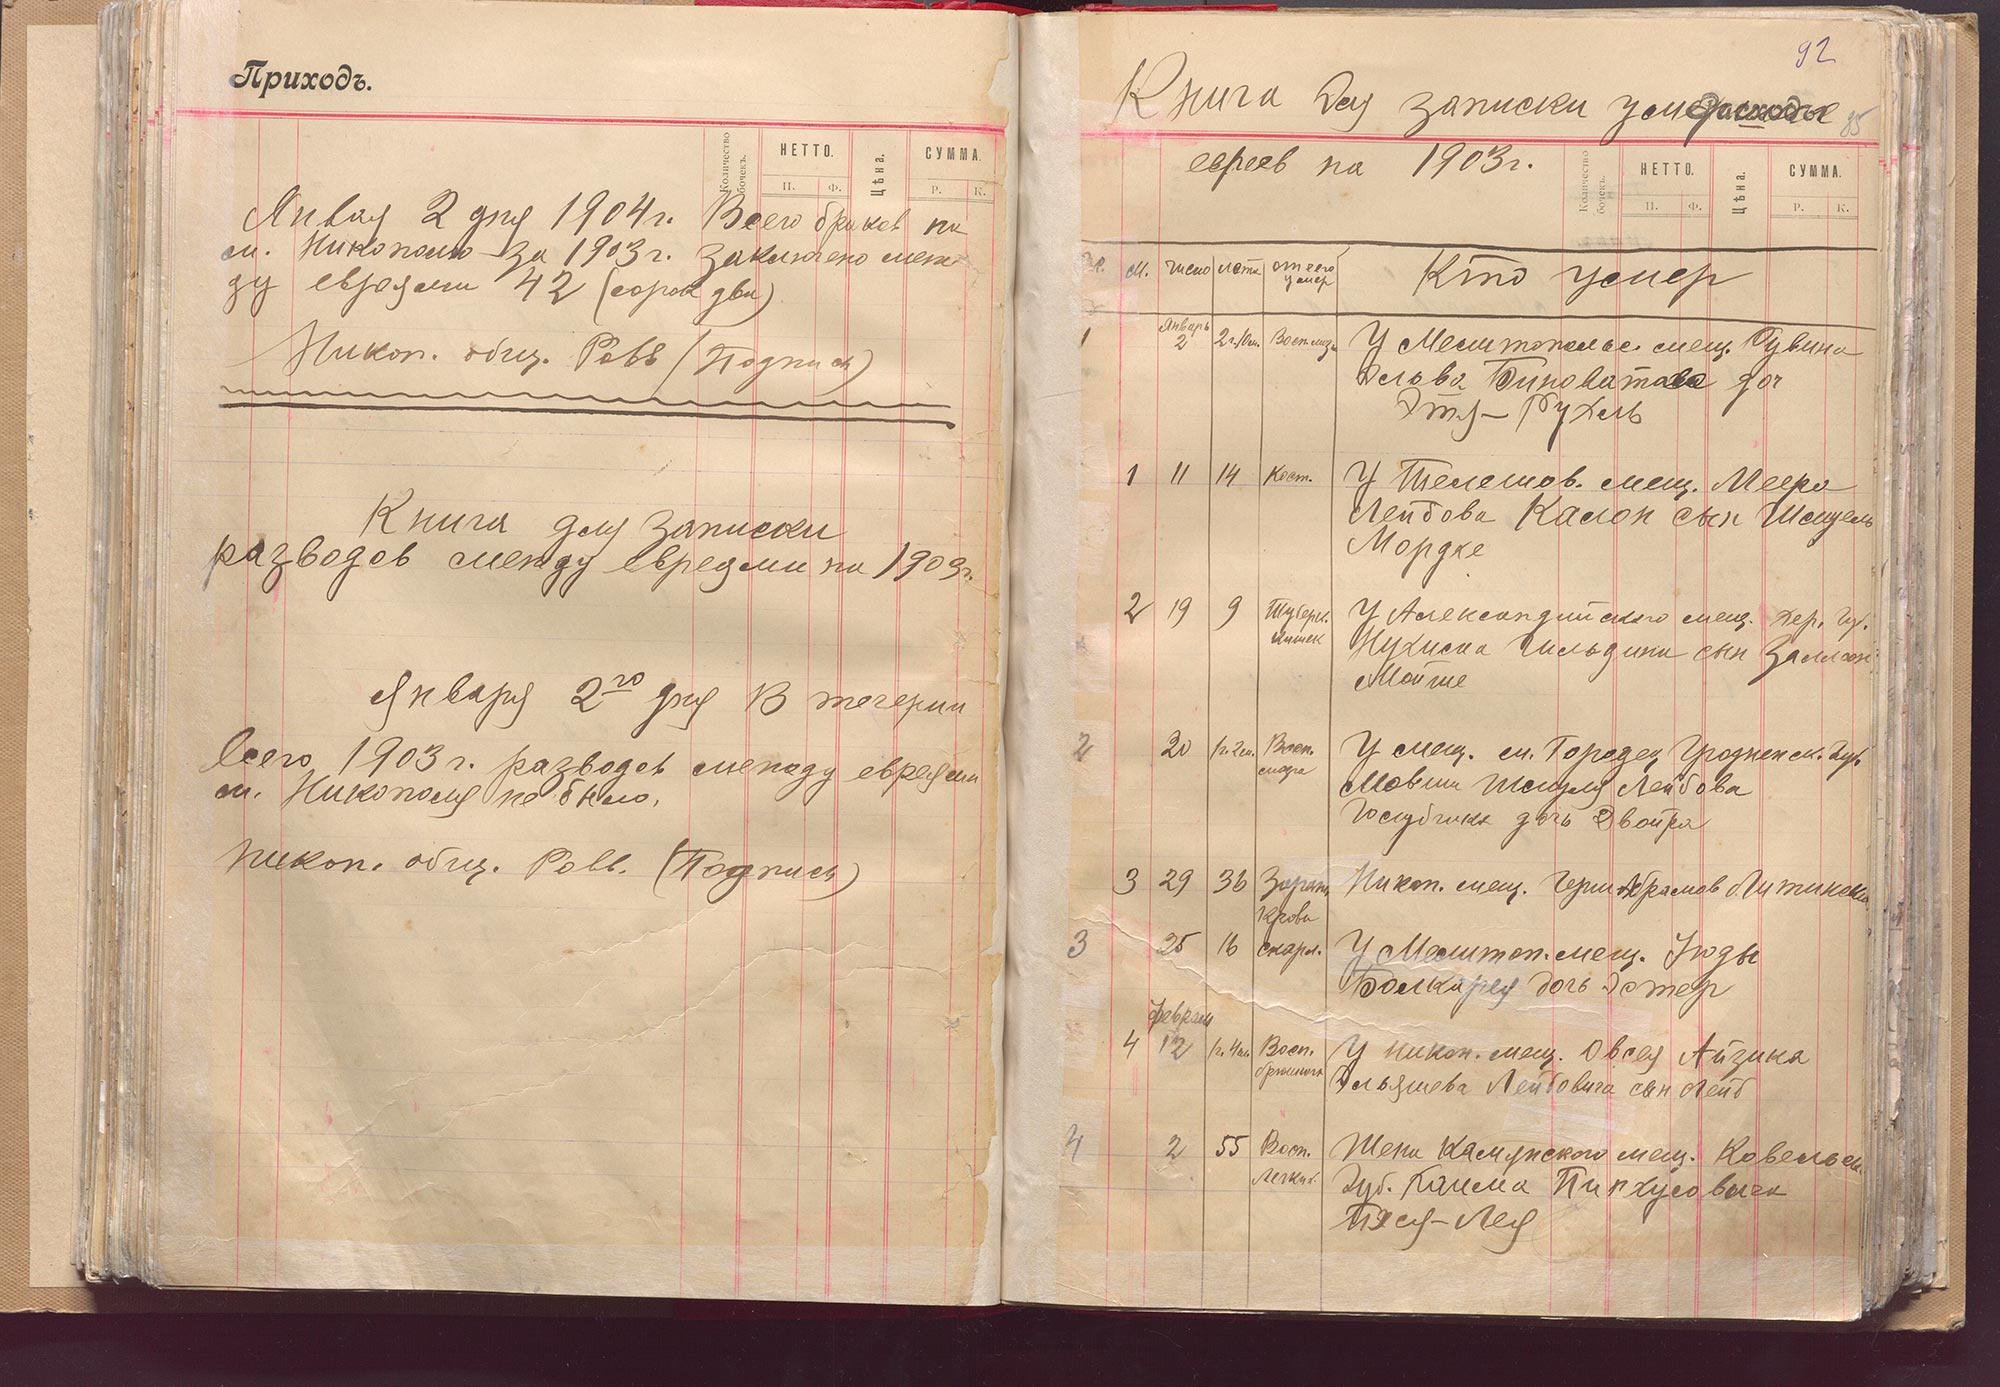 Приходъ.
Количество бочекъ.
НЕТТО.
П. Ф.
Цѣна.
СУММА.
Р. К.
Января 2 дня 1904 г. Всего браков по
м. Никополю за 1903 г. заключено меж
ду евреями 42 (сорок два)
Никоп. общ. Равв (Подпись)
Книга для записки
разводов между евреями на 1903 г.
Января 2го дня В течении
всего 1903 г. разводов между евреями
м. Никополя не было.
Никоп. общ. Равв. (Подпись)
92
85
Книга для записки умерших
Расходъ
евреев на 1903 г.
Количество бочекъ.
НЕТТО.
П. Ф.
Цѣна.
СУММА.
Р. К.
М. число лета от чего умер Кто умер
1 Январь 2 2 г. 10 м. У Мелитопольс. мещ. Рувина
Эльва дочь
Этя-Рухель
1 11 14 У мещ. Меера
Лейбова Каток сын Шмуель
Мордке
2 19 9 Туберк. У Александрийского мещ. Хер. Губ.
сын Залман
Мойше
2 20 1 г. 2 м. Восп. У мещ. м. Городец Гродненск. Губ.
Мовши Шмуля Лейбова
дочь Двойра
3 29 36 Зараж. Крови Никоп. мещ. Герш Абрамов
3 25 16 скарл. У Мелитоп. мещ. Юды
дочь Эстер
Февраль
4 12 1 г. 4 м. Восп. брюшного У Никоп. мещ. Овсея Айзика
Эльяшева Лейбовича сын Лейб
4 2 55 Восп. Легких. Жена мещ. Ковельск.
Губ. Хаима Пинхусовича
Песя-Лея